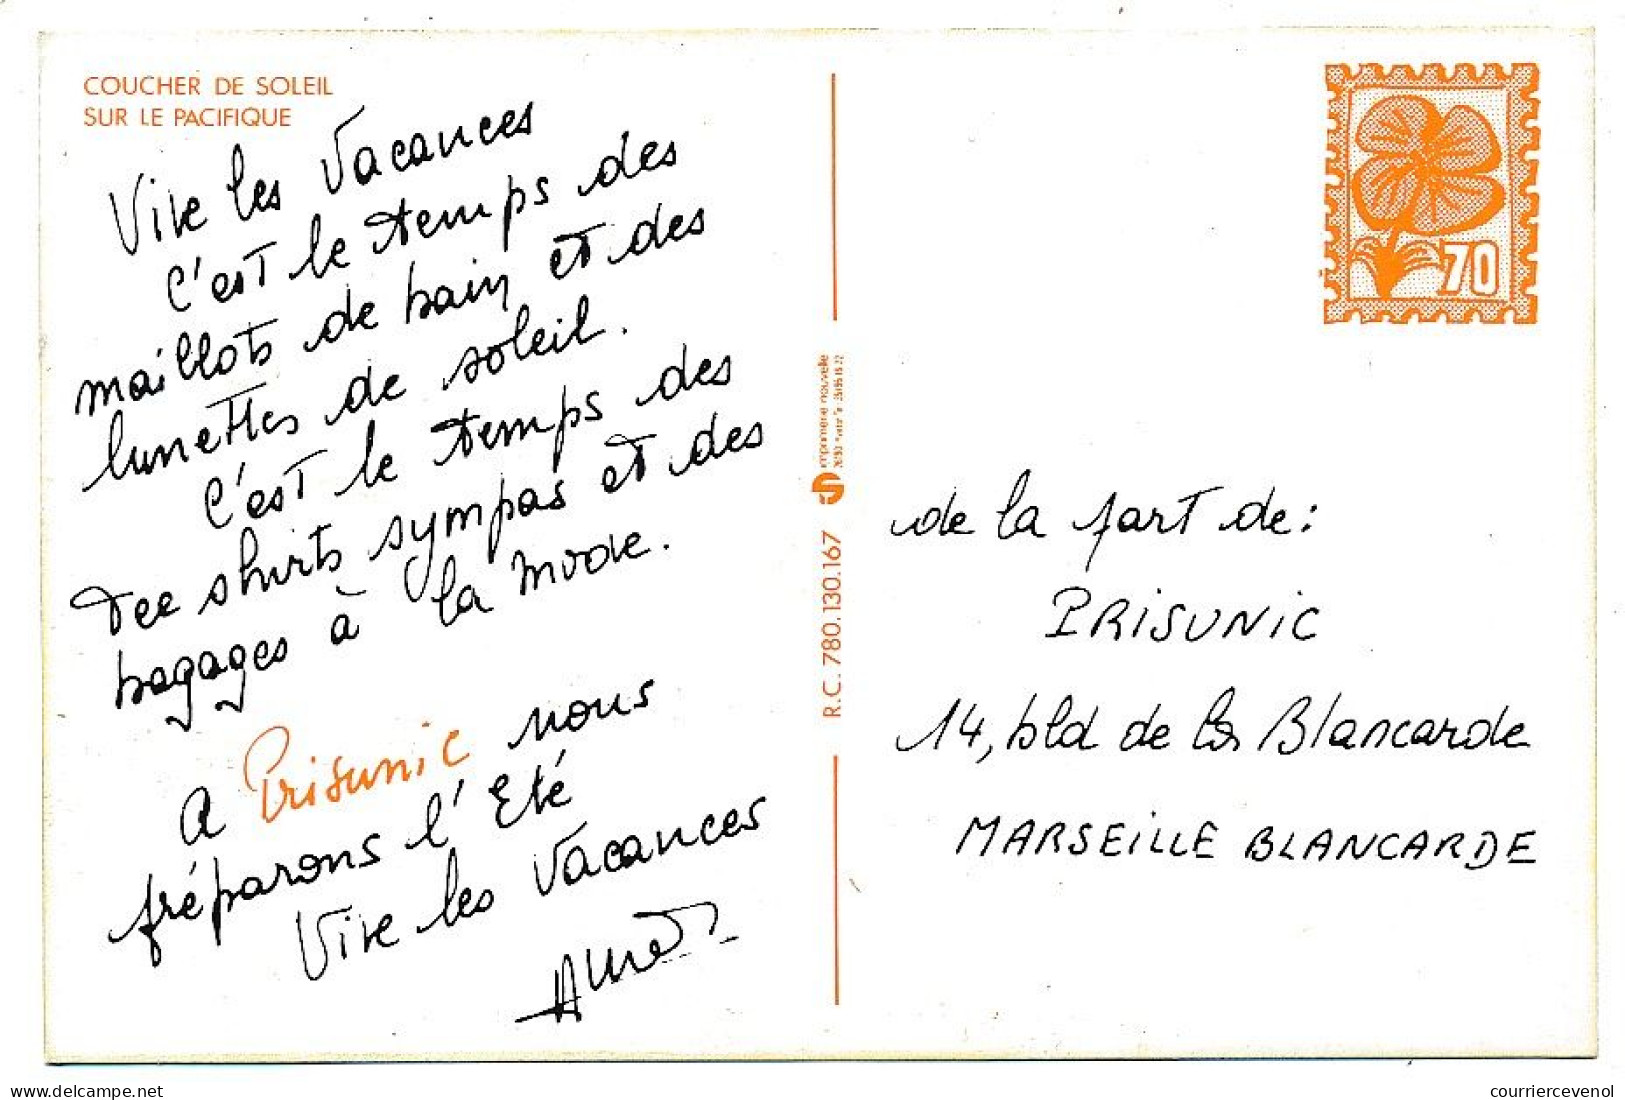 COUCHER DE SOLEIL
SUR LE PACIFIQUE
Vive les Vacances
C'est le temps des
maillots de bain et des
lunettes de soleil.
C'est le temps des
Tee shirts sympas et des
bagages à la mode.
A Prisunic nous
préparons l'Eté
Vive les Vacances
R.C. 780.130.167
imprimerie nouvelle
70
de la part de:
PRISUNIC
14, bld de la Blancarde
MARSEILLE BLANCARDE
https://www.delcampe.net
courriercevenol